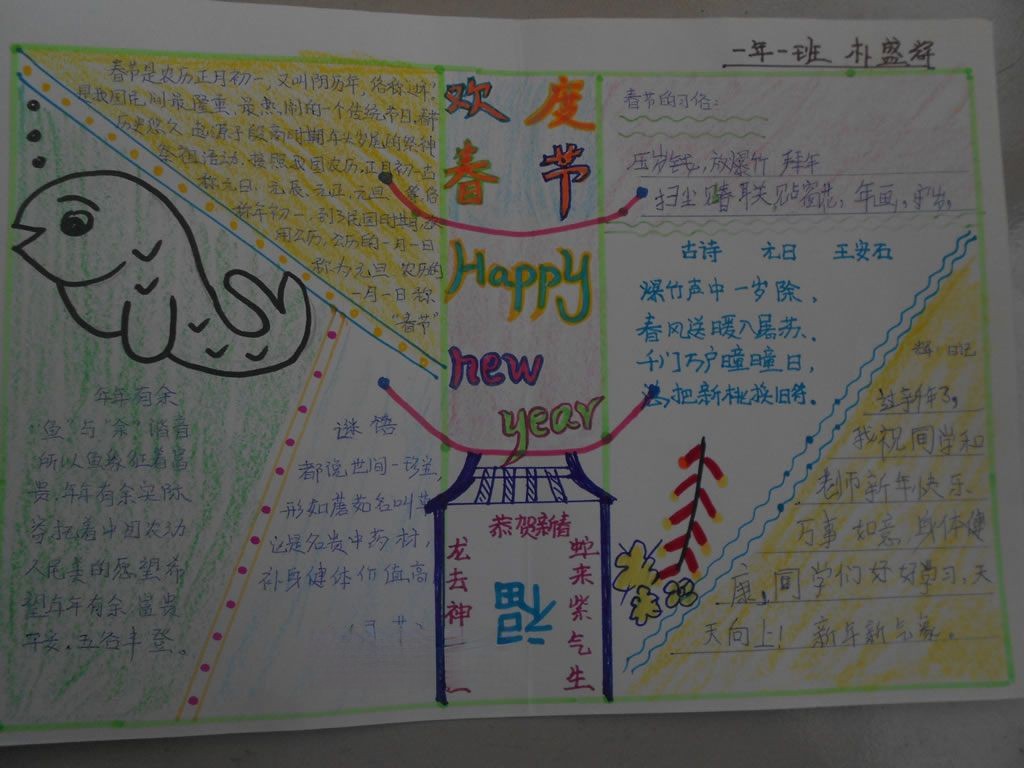 一年一班 朴盛群
春节是农历正月初一，又叫阴历年，俗称过年，
是我国民间最隆重、最热闹的一个传统节日。春节
历史悠久，起源于殷商时期年头岁尾的祭神
祭祖活动。按照我国农历，正月初一古
称元日、元辰、元正、元旦等，俗
称年初一，到了民国时期，改
用公历，公历的一月一日
称为元旦，农历的
一月一日称
“春节”
年年有余
“鱼”与“余”谐音
所以鱼象征着富
贵，年年有余实际
寄托着中国农动
人民美的愿望希
望年年有余，富贵
平安，五谷丰登。
谜语
都说世间一珍宝，
形如蘑菇名叫草
这是名贵中药材，
补身健体价值高
欢度
春节
Happy
new
year
恭贺新春
龙去神
福
蛇来紫气生
春节的习俗：
压岁钱，放爆竹 拜年
扫尘 贴春联 贴窗花，年画，守岁，
古诗 元日 王安石
爆竹声中一岁除，
春风送暖入屠苏。
千门万户曈曈日，
总把新桃换旧符。
日记
过新年了，
我祝同学和
老师新年快乐
万事如意，身体健
康，同学们好好学习，天
天向上！新年新气象。